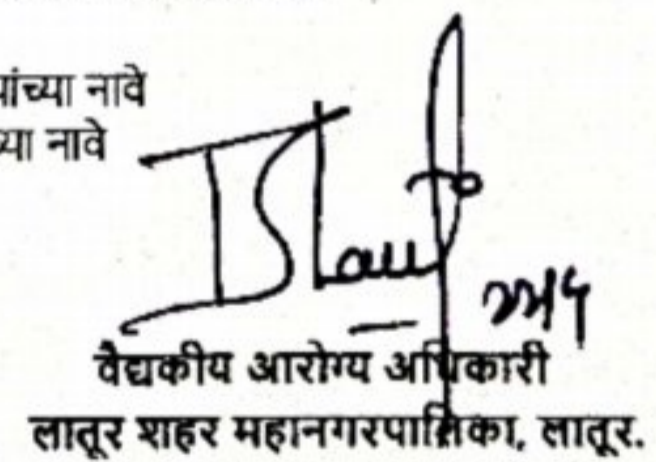 यांच्या नावे
च्या नावे
वैद्यकीय आरोग्य अधिकारी
लातूर शहर महानगरपालिका, लातूर.